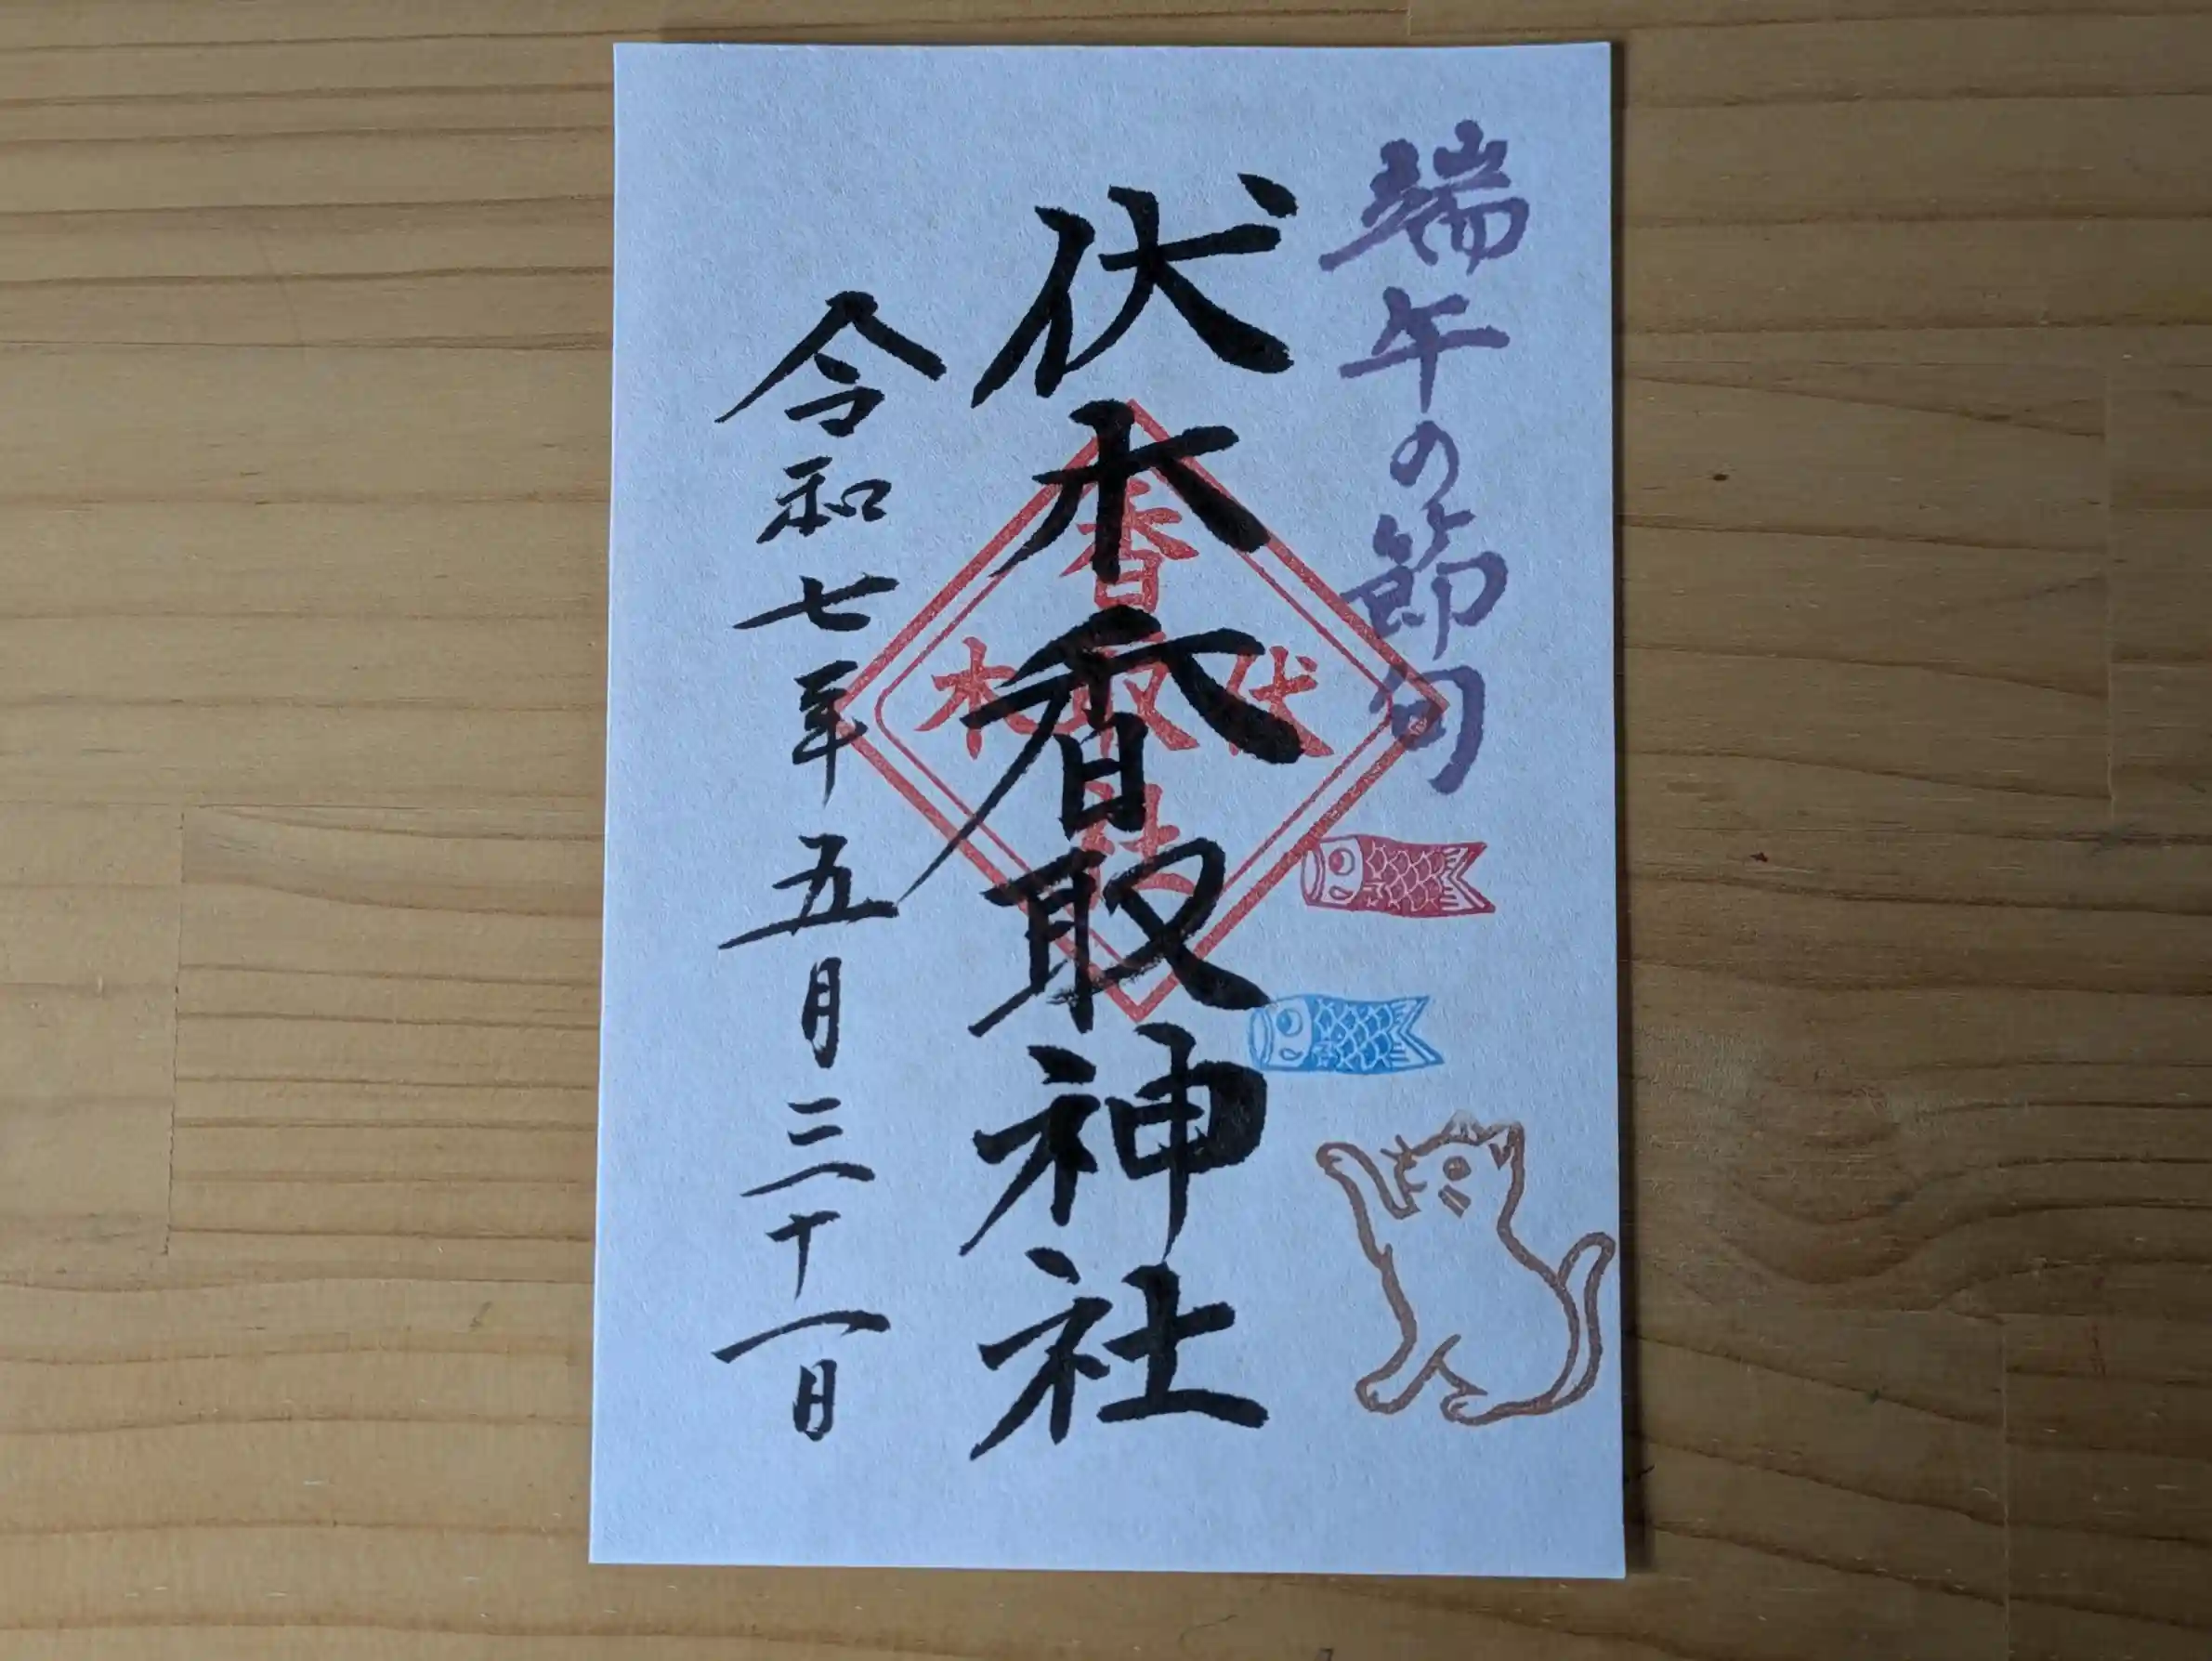 端午の節句
伏木香取神社
令和七年五月三十一日
香
伏取木
社